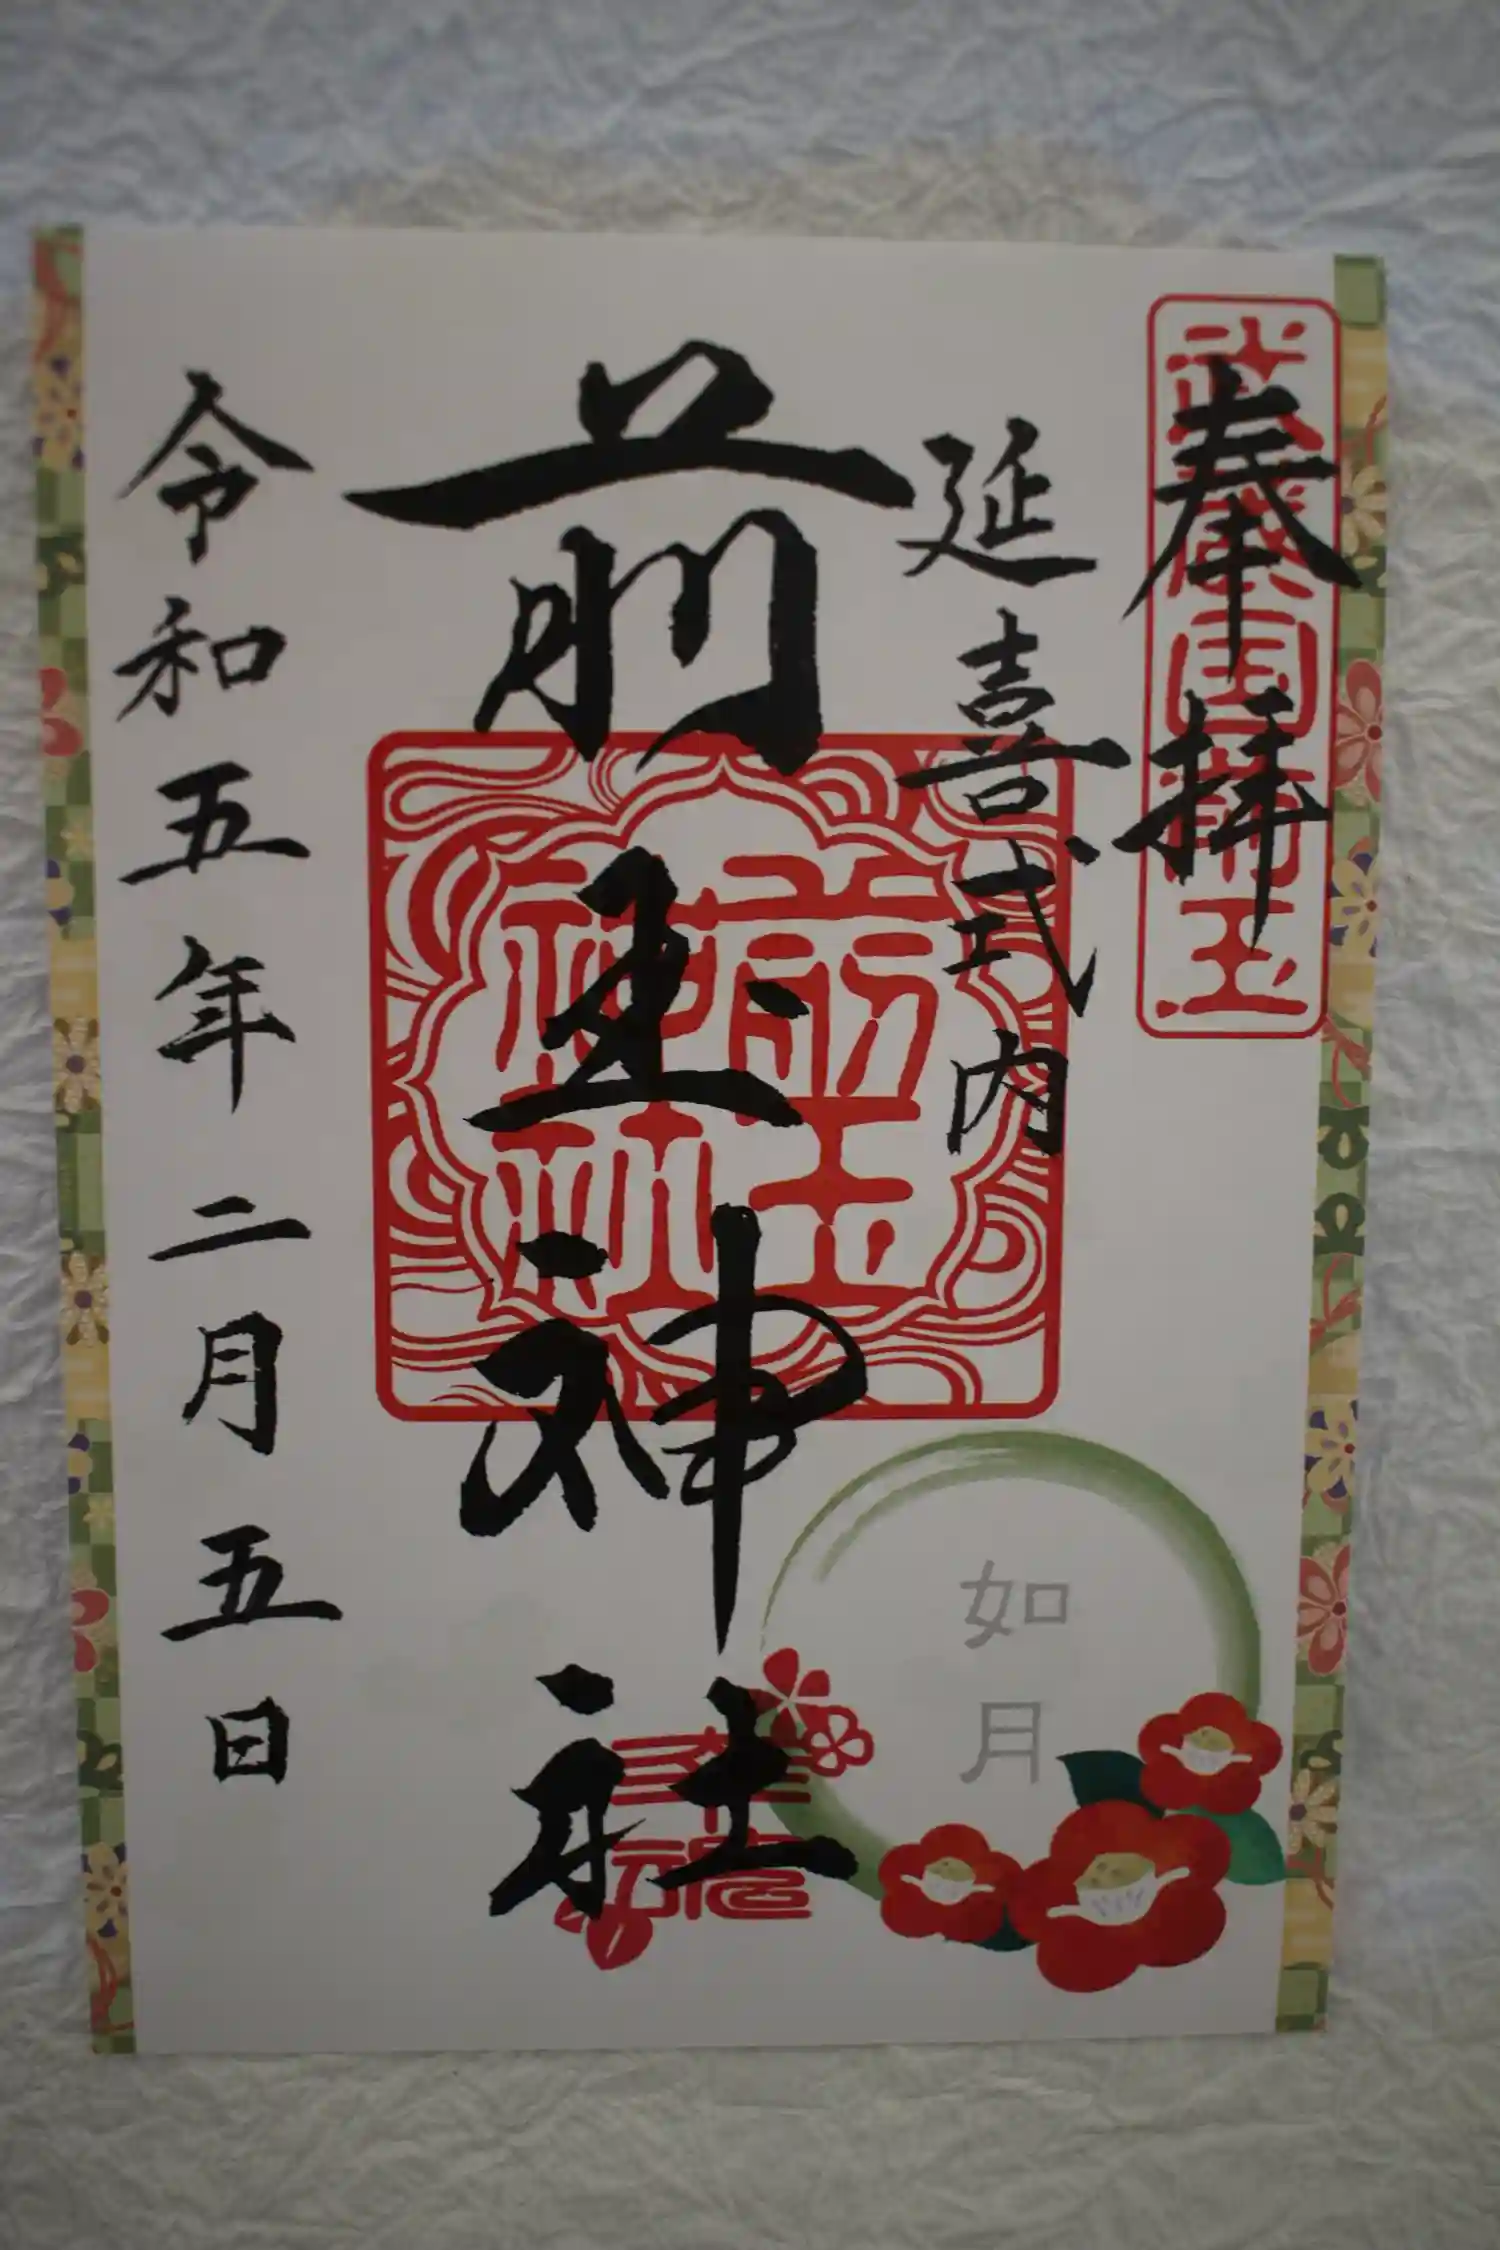 奉拝
武蔵国埼玉
延喜式内
前玉神社
前玉神社
如月
令和五年二月五日